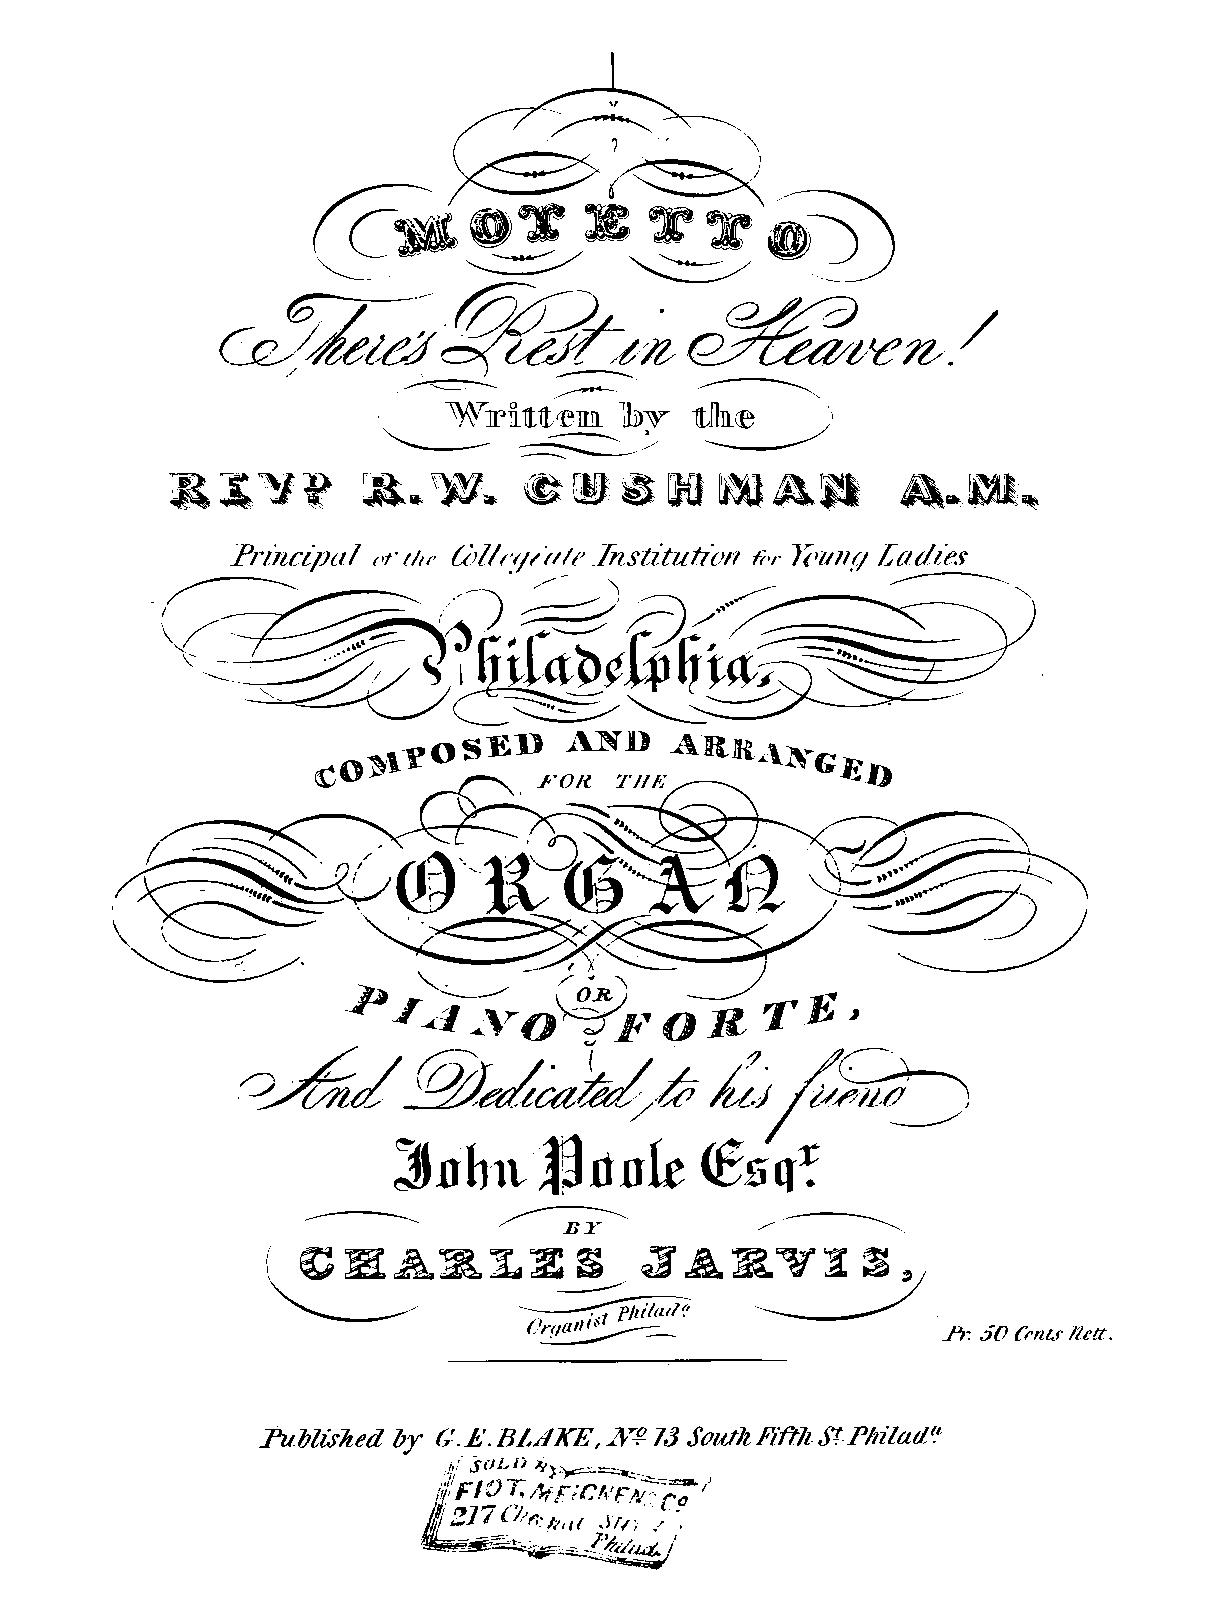 MOTETTO
There's Rest in Heaven!
Written by the
REVD. R. W. CUSHMAN A.M.
Principal of the Collegiate Institution for Young Ladies
Philadelphia,
COMPOSED AND ARRANGED
FOR THE
ORGAN
OR
PIANO FORTE,
And Dedicated to his friend
John Poole Esqr.
BY
CHARLES JARVIS,
Organist Philada.
Pr. 50 Cents Nett.
Published by G. E. BLAKE, No. 13 South Fifth St. Philada.
SOLD BY
FIOT, MEIGNEN & Co
217 Chesnut Str
Philad.